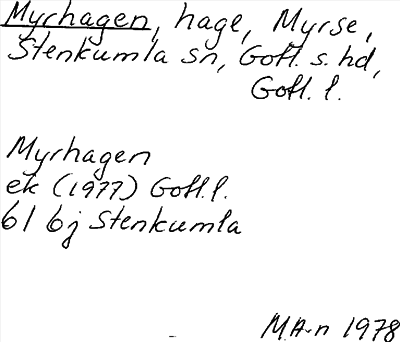 Myrhagen, hage, Myrse,
Stenkumla sn, Gotl. s. hd,
Gotl. l.
Myrhagen
ek (1977) Gotl. l.
6I 6j Stenkumla
M.A-n 1978